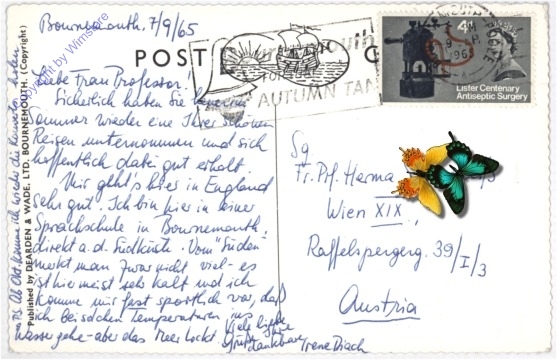 Bournemouth, 7/9/65
POST
Liebe Frau Professor!
Sicherlich haben Sie heuer im
Sommer wieder eine Ihrer schönen
Reisen unternommen und sich
hoffentlich dabei gut erholt
Mir geht's hier in England
sehr gut! Ich bin hier in einer
Sprachschule in Bournemouth,
direkt a. d. Südküste. Vom "Süden"
merkt man zwar nicht viel - es
ist hier meist sehr kalt und ich
komme mir fast sportlich vor, daß
ich bei solchen Temperaturen ins
Wasser gehe - aber das Meer lockt
Viele liebe
Grüße Ihre
dankbare
Irene Disch
Published by DEARDEN & WADE, LTD. BOURNEMOUTH. (Copyright)
Copyright by Wimstore
FOR YOUR
AUTUMN TAN
4d
Lister Centenary
Antiseptic Surgery
Sg
Fr. Prf. Herma
Wien XIX
Raffelspergerg. 39/I/3
Austria